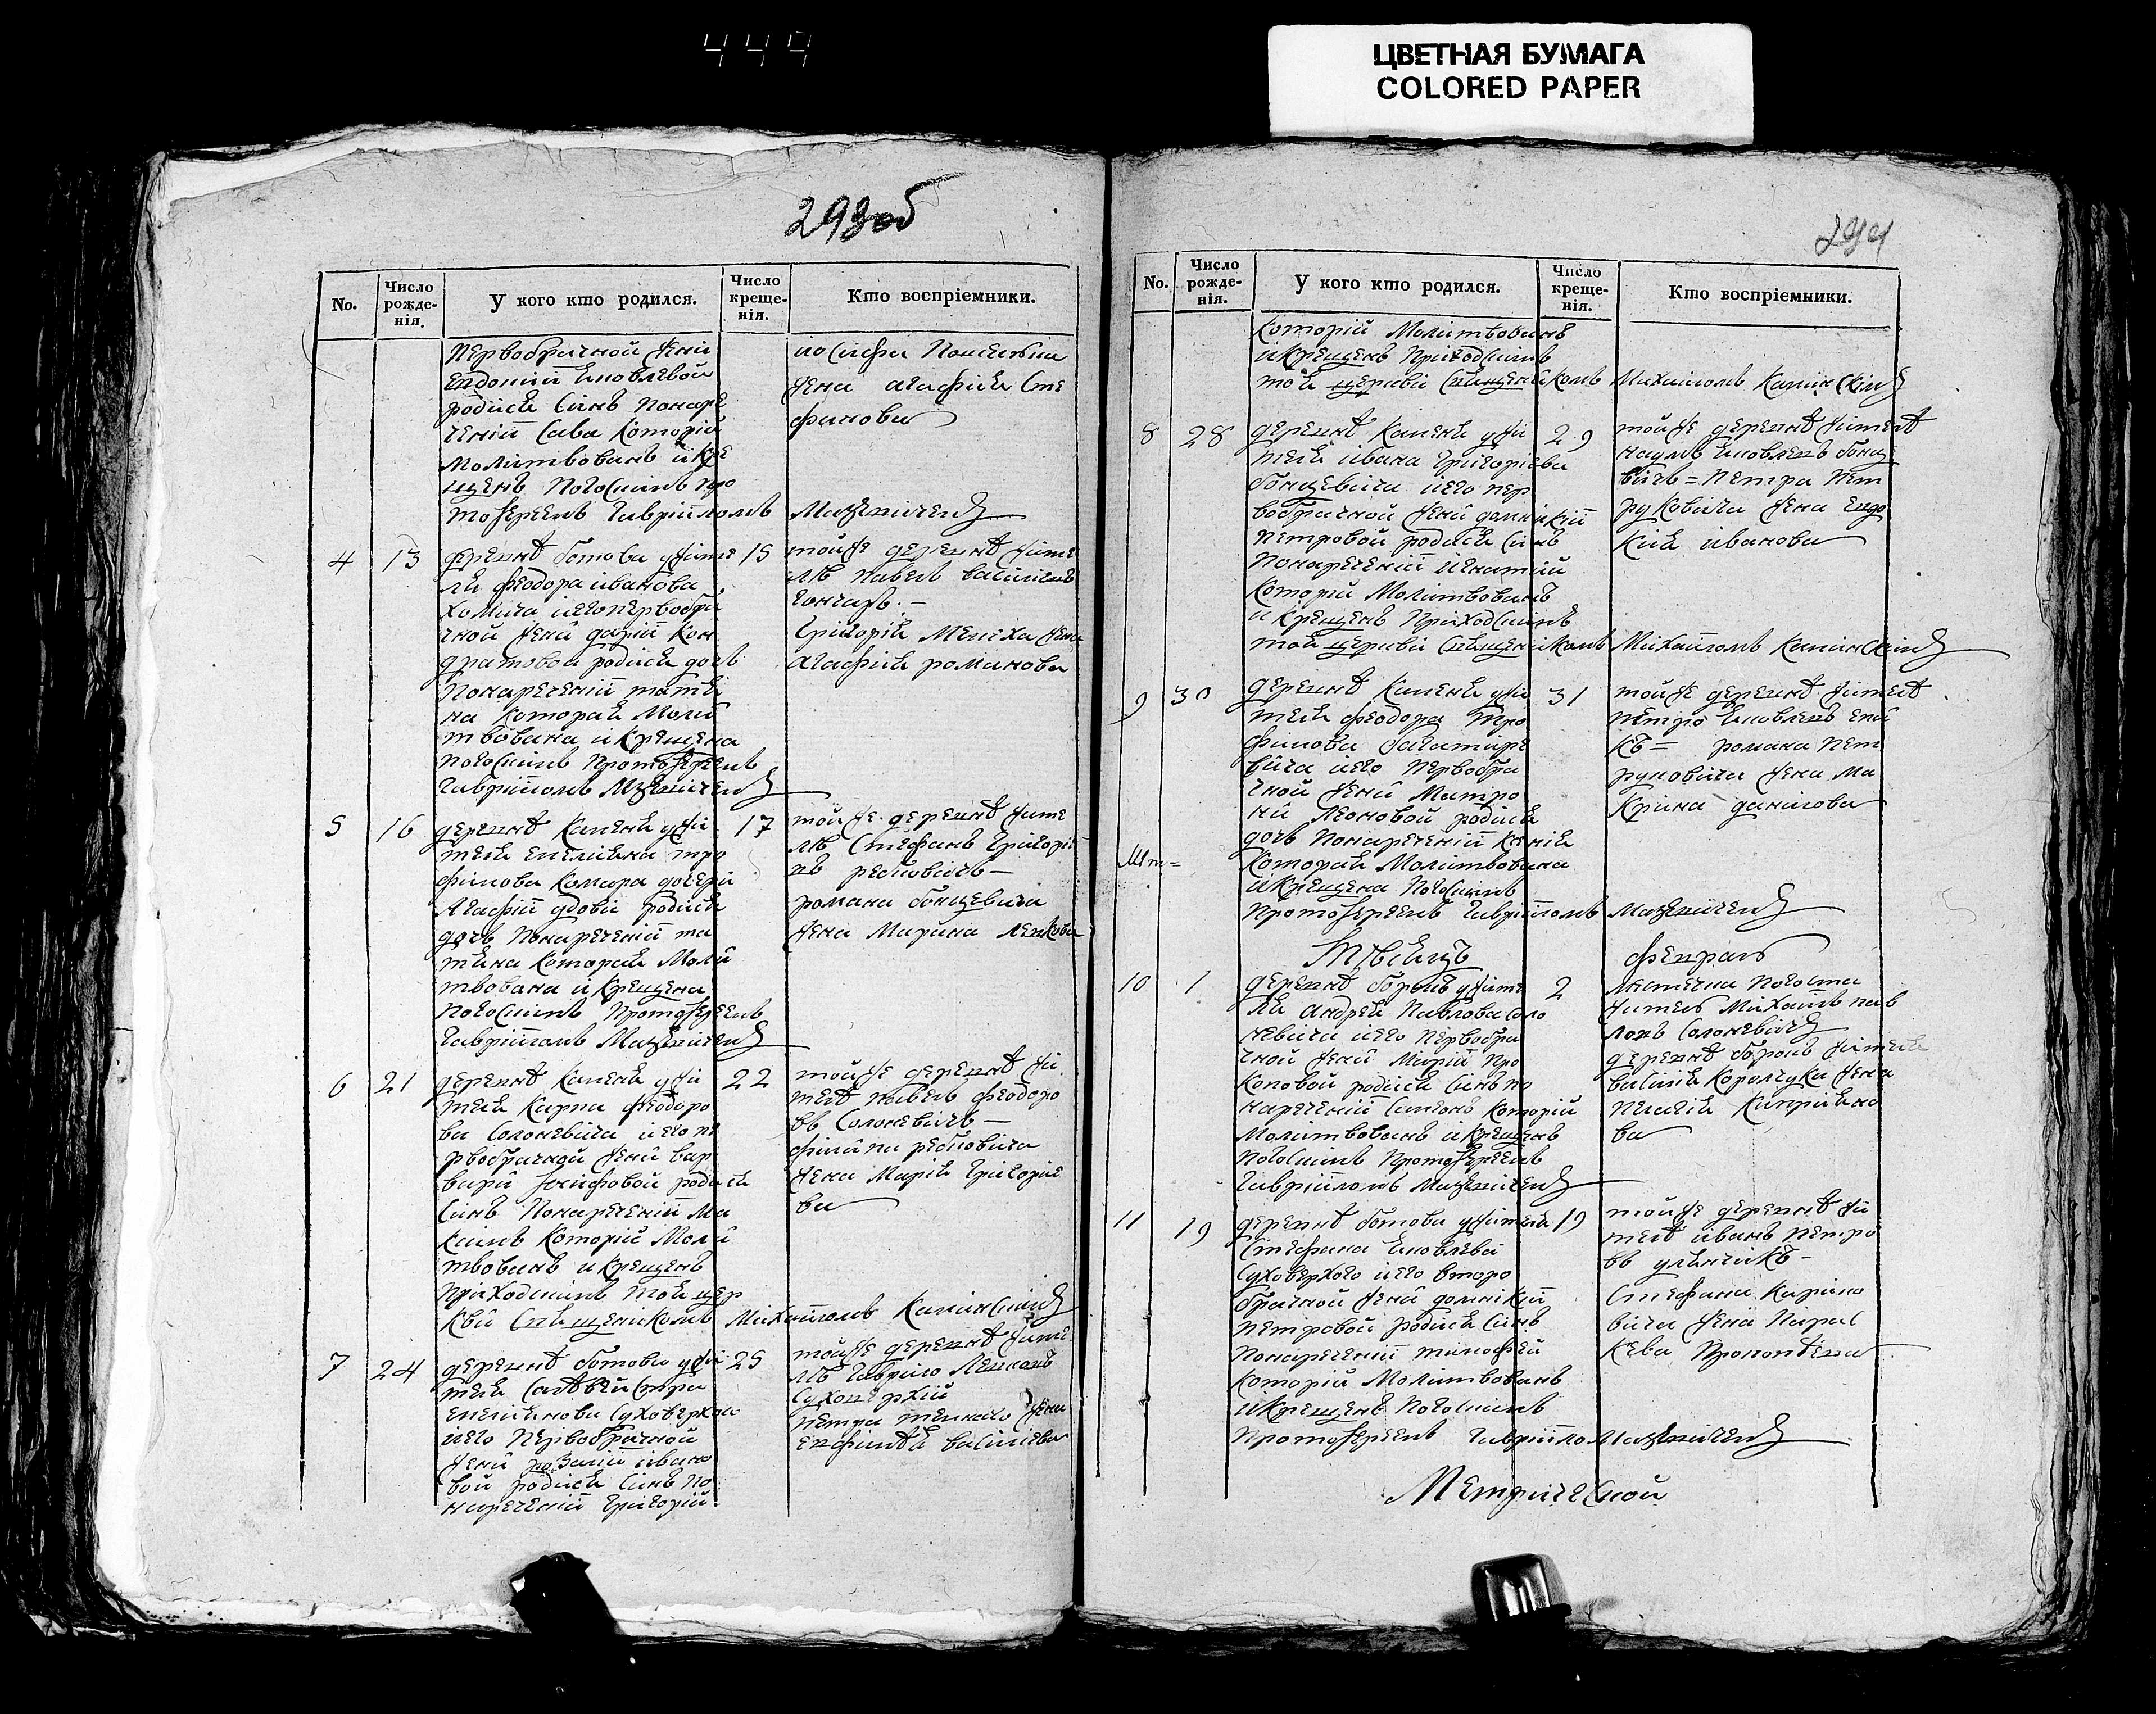 444
ЦВЕТНАЯ БУМАГА
COLORED PAPER
293об
294
No.
Число рожде-нія.
У кого кто родился.
Число креще-нія.
Кто воспріемники.
первобрачной жени
родися синъ понаре
ченій Сава которій
молитвованъ и кре
щенъ погоскимъ про
тоіереемъ Гавріиломъ
іосифа
жена агафія Сте
фанова
4 13
деревнѣ Готова ужите
ля феодора иванова
Хомича и его первобра
чной жени дарій Кон
дратовой родися дочъ
понареченій татія
на которая моли
твована и крещена
погоскимъ протоіереемъ
Гавріиломъ
15
тойже деревнѣ жите
лъ павелъ василіевъ
гончаръ. –
Григорія жена
агафія романова
5 16
деревнѣ Каменя ужи
теля емелияна тро
фимова Комара дочери
Агафіи вдови родися
дочъ понареченій та
тияна которая моли
твована и крещена
погоскимъ протоіереемъ
Гавріиломъ
17
тойже деревнѣ жите
лъ Стефанъ Григоріе
въ
романа Гонцевича
жена Марина Левкова
6 21
деревнѣ Каменя ужи
теля Карпа феодоро
ва Солоневича и его пе
рвобрачной жени вар
вари іосифовой родися
синъ понареченій ма
ксимъ которій моли
твованъ и крещенъ
приходскимъ тоя цер
кви священикомъ Михаиломъ Каминскимъ
22
тойже деревнѣ жи
телъ павелъ феодоро
въ Солоневичъ –
жена Марія Григоріе
ва
7 24
деревнѣ Готова ужи
теля
емелиянова Суховерхого
и его первобрачной
жени розалій ивано
вой родися синъ по
нареченій Григорій
25
тойже деревнѣ жите
лъ Гаврило
жена
василіева
No.
Число рожде-нія.
У кого кто родился.
Число креще-нія.
Кто воспріемники.
которій молитвованъ
и крещенъ приходскимъ
тоя церкви священикомъ Михаиломъ Каминскимъ
8 28
деревнѣ Каменя ужи
теля ивана Григоріева
Гонцевича и его пер
вобрачной жени домникій
петровой родися синъ
понареченій игнатій
которій молитвованъ
и крещенъ приходскимъ
тоя церкви священикомъ Михаиломъ Каминскимъ
29
тойже деревнѣ жителъ
наумъ яковлевъ Гонце
вичъ = петра пет
руковича жена евдо
кия иванова
9 30
деревнѣ Каменя ужи
теля феодора тро
фимова
вича и его первобра
чной жени матро
ни леоновой родися
дочъ понареченій ксенія
которая молитвована
и крещена погоскимъ
протоіереемъ Гавріиломъ
31
тойже деревнѣ жителъ
петро яковлевъ
романа пет
руковича жена ма
крина данилова
мѣсяцъ февралъ
10 1
деревнѣ ужите
ля андрея павлова соло
невича и его первобра
чной жени Марій про
коповой родися синъ по
нареченій Симеонъ которій
молитвованъ и крещенъ
погоскимъ протоіереемъ
Гавріиломъ
2
местечка погоста
жителъ Михаилъ пав
ловъ Солоневичъ
деревнѣ жителя
василія Королчука жена
пелагія Кипріяно
ва
11 19
деревнѣ Готова ужителя
Стефана яковлева
Суховерхого и его второ
брачной жени домникій
петровой родися синъ
понареченій тимофей
которій молитвованъ
и крещенъ погоскимъ
протоіереемъ Гавріиломъ
19
тойже деревнѣ жи
телъ иванъ петро
въ
Стефана Карпо
вича жена парас
кева прокопіева
Метрической